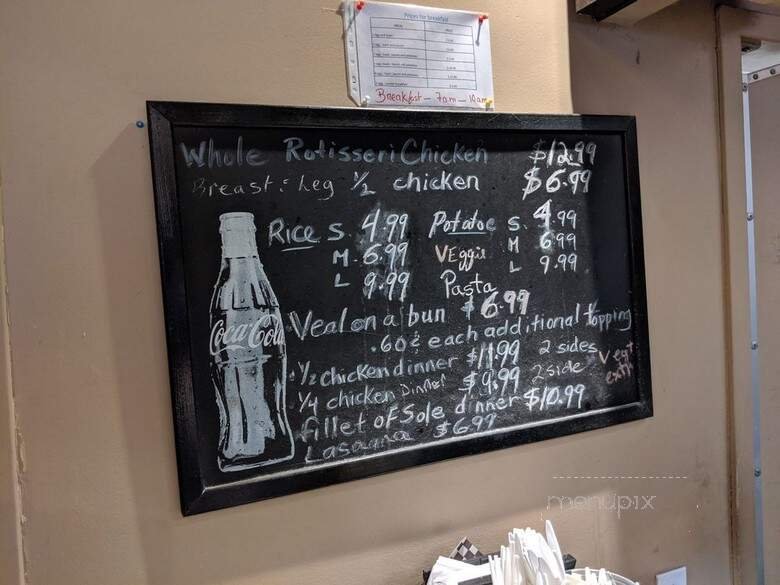 Prices for breakfast
Breakfast - 7am - 10am
Whole RotisseriChicken $12.99
Breast: Leg 1/2 chicken $6.99
Rice S. 4.99 Potatoe S. 4.99
M. 6.99 Veggie M 6.99
L 9.99 Pasta L 9.99
Coca-Cola
Veal on a bun $6.99
.60¢ each additional topping
1/2 chicken dinner $11.99 2 sides
1/4 chicken Dinner $9.99 2 side Veg+ extra
fillet of Sole dinner $10.99
Lasagna $6.99
menupix